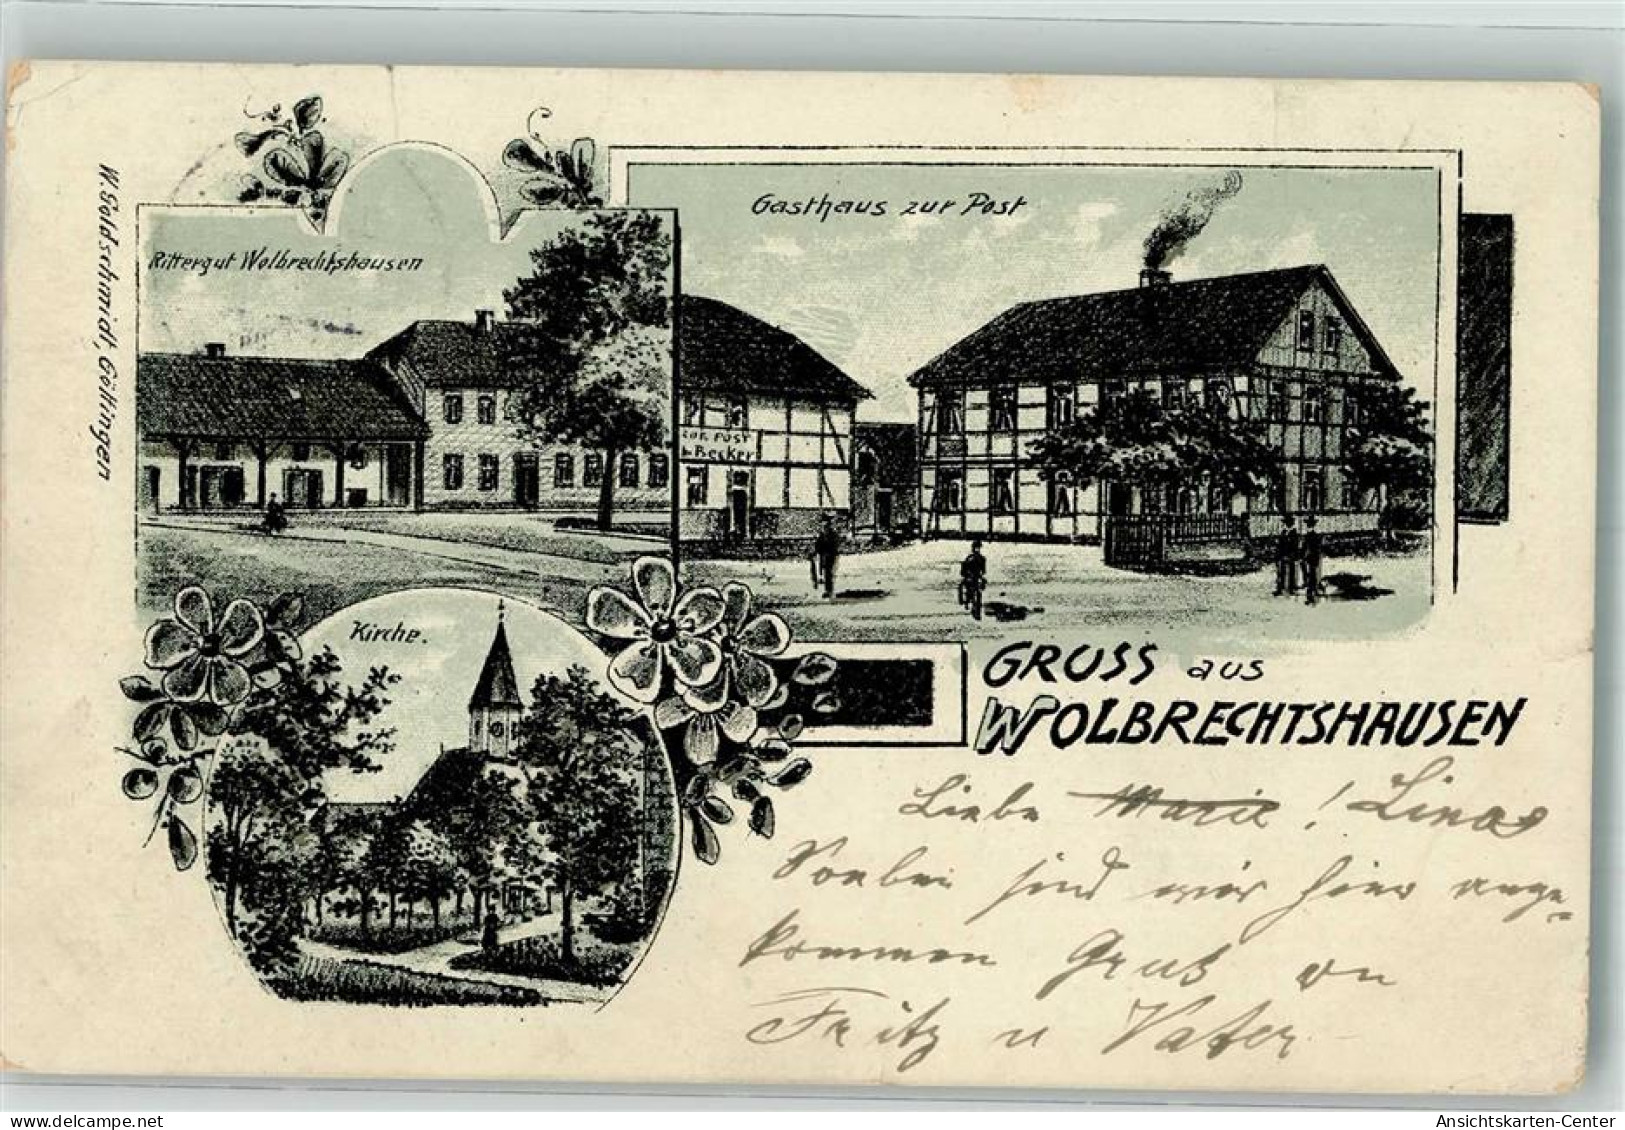 W. Goldschmidt, Göttingen
Rittergut Wolbrechtshausen
Gasthaus zur Post
ZUR POST
Becker
Kirche.
GRUSS aus
WOLBRECHTSHAUSEN
Liebe Marie ! Lina
Soeben sind wir hier ange-
kommen Gruß an
Fritz u Vater
Ansichtskarten-Center